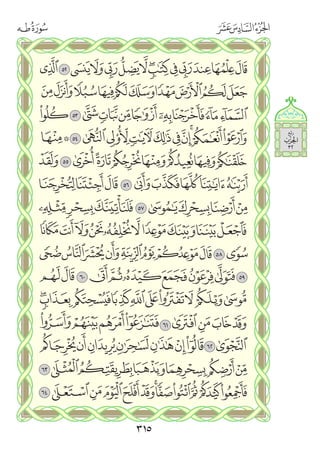 سُورَةُ طه
الجُزْءُ السَّادِسَ عَشَرَ
قَالَ عِلْمُهَا عِندَ رَبِّي فِي كِتَٰبٖۖ لَّا يَضِلُّ رَبِّي وَلَا يَنسَى ٥٢ ٱلَّذِي
جَعَلَ لَكُمُ ٱلۡأَرۡضَ مَهۡدٗا وَسَلَكَ لَكُمۡ فِيهَا سُبُلٗا وَأَنزَلَ مِنَ
ٱلسَّمَآءِ مَآءٗ فَأَخۡرَجۡنَا بِهِۦٓ أَزۡوَٰجٗا مِّن نَّبَاتٖ شَتَّىٰ ٥٣ كُلُواْ
وَٱرۡعَوۡاْ أَنۡعَٰمَكُمۡۚ إِنَّ فِي ذَٰلِكَ لَأٓيَٰتٖ لِّأُوْلِي ٱلنُّهَىٰ ٥٤ ۞ مِنۡهَا
خَلَقۡنَٰكُمۡ وَفِيهَا نُعِيدُكُمۡ وَمِنۡهَا نُخۡرِجُكُمۡ تَارَةً أُخۡرَىٰ ٥٥ وَلَقَدۡ
أَرَيۡنَٰهُ ءَايَٰتِنَا كُلَّهَا فَكَذَّبَ وَأَبَىٰ ٥٦ قَالَ أَجِئۡتَنَا لِتُخۡرِجَنَا
مِنۡ أَرۡضِنَا بِسِحۡرِكَ يَٰمُوسَىٰ ٥٧ فَلَنَأۡتِيَنَّكَ بِسِحۡرٖ مِّثۡلِهِۦ
فَٱجۡعَلۡ بَيۡنَنَا وَبَيۡنَكَ مَوۡعِدٗا لَّا نُخۡلِفُهُۥ نَحۡنُ وَلَآ أَنتَ مَكَانٗا
سُوٗى ٥٨ قَالَ مَوۡعِدُكُمۡ يَوۡمُ ٱلزِّينَةِ وَأَن يُحۡشَرَ ٱلنَّاسُ ضُحٗى
٥٩ فَتَوَلَّىٰ فِرۡعَوۡنُ فَجَمَعَ كَيۡدَهُۥ ثُمَّ أَتَىٰ ٦٠ قَالَ لَهُم
مُّوسَىٰ وَيۡلَكُمۡ لَا تَفۡتَرُواْ عَلَى ٱللَّهِ كَذِبٗا فَيُسۡحِتَكُم بِعَذَابٖۖ
وَقَدۡ خَابَ مَنِ ٱفۡتَرَىٰ ٦١ فَتَنَٰزَعُوٓاْ أَمۡرَهُم بَيۡنَهُمۡ وَأَسَرُّواْ
ٱلنَّجۡوَىٰ ٦٢ قَالُوٓاْ إِنۡ هَٰذَٰنِ لَسَٰحِرَٰنِ يُرِيدَانِ أَن يُخۡرِجَاكُم
مِّنۡ أَرۡضِكُم بِسِحۡرِهِمَا وَيَذۡهَبَا بِطَرِيقَتِكُمُ ٱلۡمُثۡلَىٰ ٦٣
فَأَجۡمِعُواْ كَيۡدَكُمۡ ثُمَّ ٱئۡتُواْ صَفّٗاۚ وَقَدۡ أَفۡلَحَ ٱلۡيَوۡمَ مَنِ ٱسۡتَعۡلَىٰ ٦٤
٣١٥